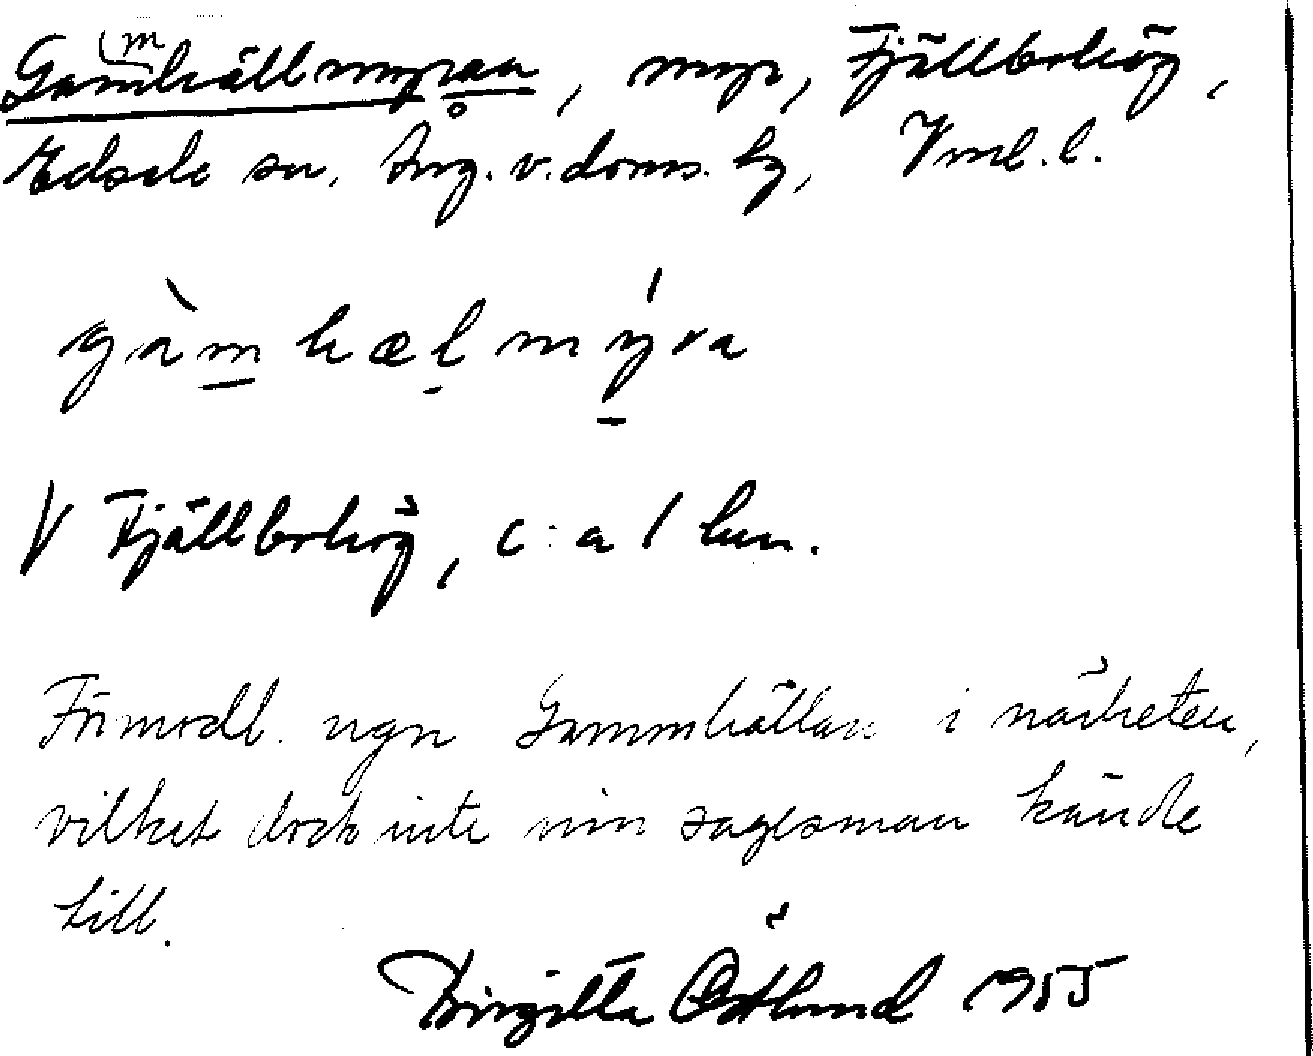 Gam(m)hällmyran, myr, Fjällbohög,
Edsele sn, Ång. v. doms. hg, Vnl. l.
gàm hæl mýra
V Fjällbohög, c:a 1 km.
Förmodl. ngn Gammhällan i närheten,
vilket dock inte min sagesman kände
till.
Birgitta Östlund 1955